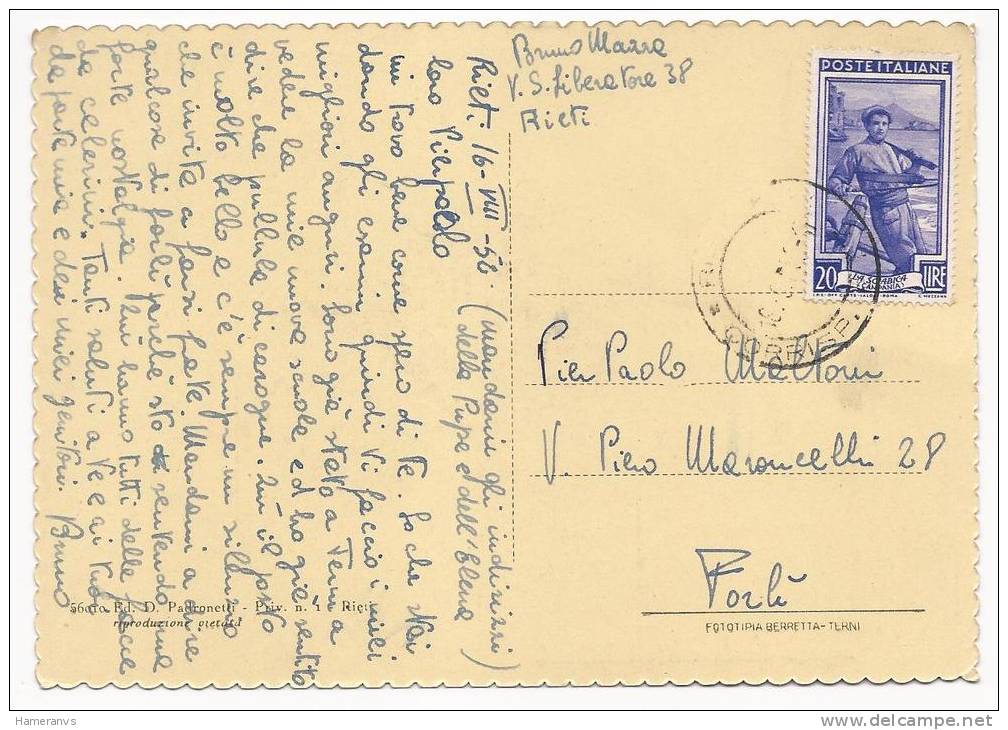 Bruno Mazza
V. S. Liberatore 38
Rieti
POSTE ITALIANE
20 LIRE
LA SCIABICA
(CAMPANIA)
Rieti 16-VIII-52 (mandami gli indirizzi
della Pupe e dell'Elena)
Caro Pierpaolo
mi trovo bene come spero di te. So che stai
dando gli esami quindi vi faccio i miei
migliori auguri. Sono già stato a Terni a
vedere la mie nuove scuole ed ho già sentito
dire che pullula di carogne. Qui il posto
è molto bello e c'è sempre un silenzio
che invita a farsi frate. Mandami a dire
qualcosa di Forlì perché sto sentendo una
forte nostalgia. Qui hanno tutti delle facce
da "celerini". Tanti saluti a te e ai tuoi
da parte mia e dei miei genitori. Bruno
Pier Paolo Mettoni
V. Piero Maroncelli 28
Forlì
56010 Ed. D. Padronetti - Priv. n. 1 - Rieti
riproduzione vietata
FOTOTIPIA BERRETTA - TERNI
Hameranvs
http://www.delcampe.net